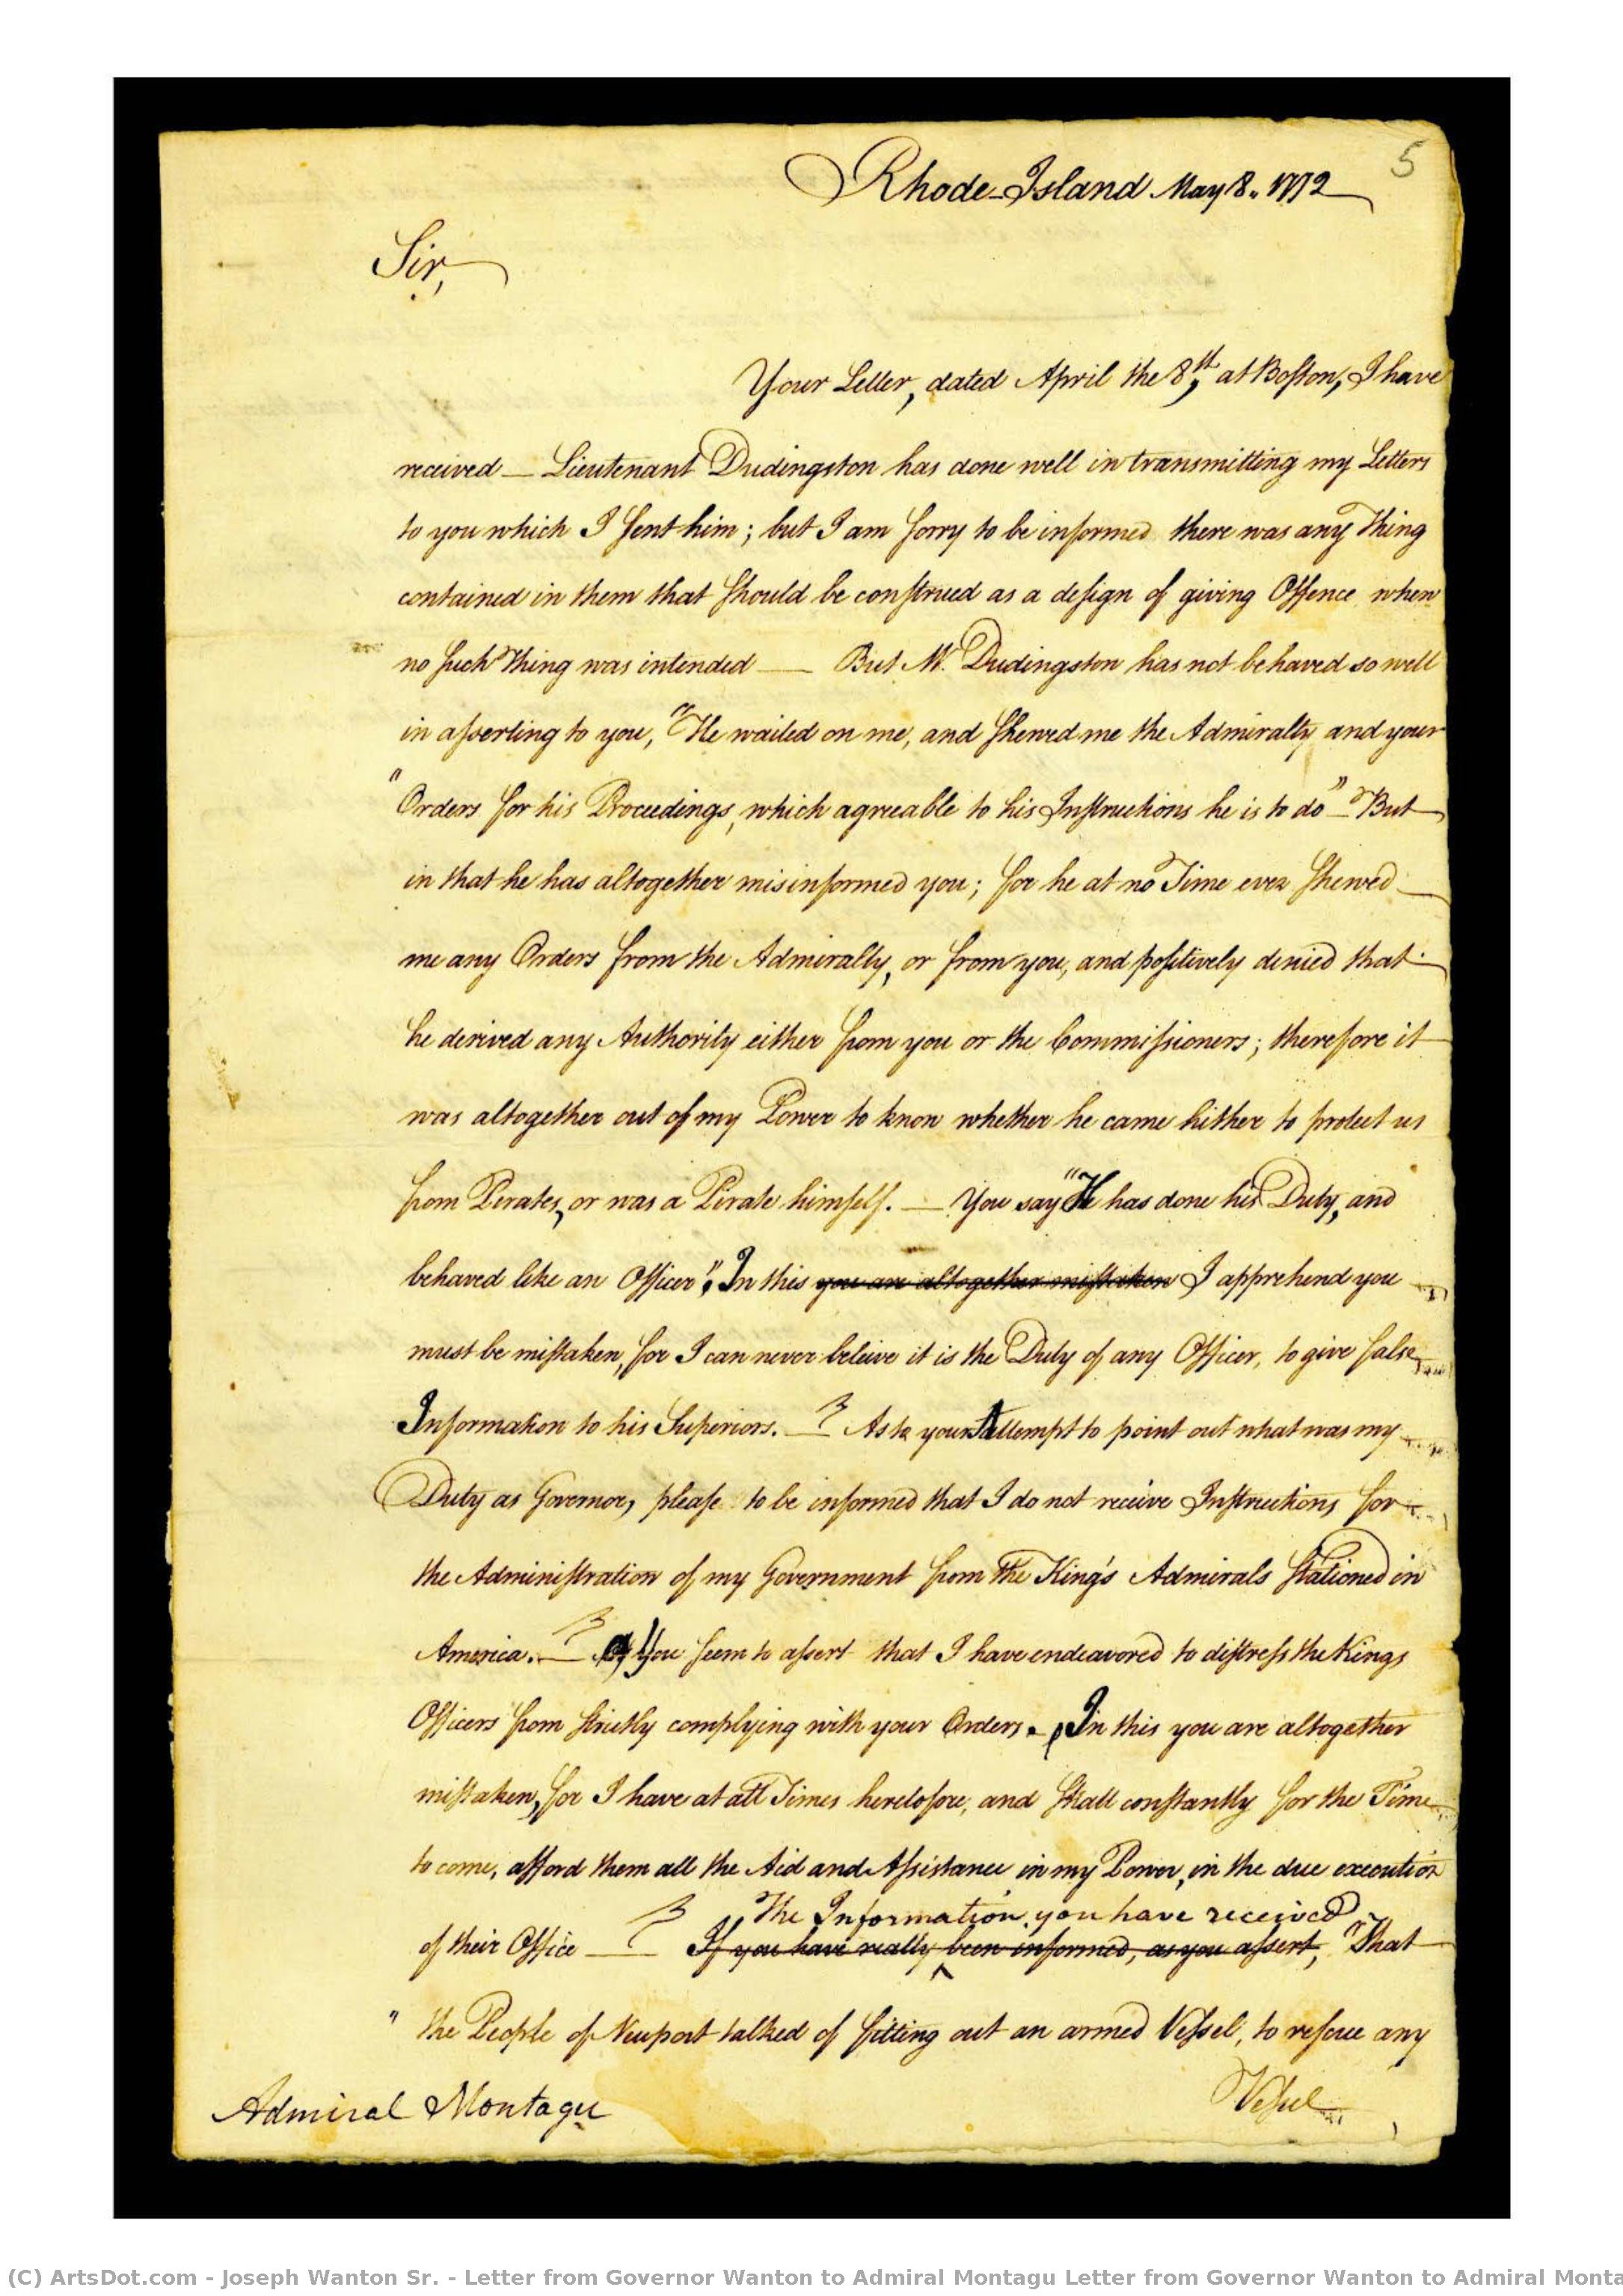 5
Rhode-Island May 8. 1772
Sir,
Your Letter, dated April the 8th, at Boſton, I have
received — Lieutenant Dudingston has done well in transmitting my Letters
to you which I ſent him; but I am ſorry to be informed there was any Thing
contained in them that ſhould be conſtrued as a deſign of giving Offence when
no ſuch Thing was intended — But Mr. Dudingston has not behaved so well
in aſserting to you, "He waited on me, and ſhewed me the Admiralty and your
"Orders for his Proceedings, which agreeable to his Inſtructions he is to do" — But
in that he has altogether misinformed you; for he at no Time ever ſhewed
me any Orders from the Admiralty, or from you, and poſitively denied that
he derived any Authority either from you or the Commiſsioners; therefore it
was altogether out of my Power to know whether he came hither to protect us
from Pirates, or was a Pirate himſelf. — You say "He has done his Duty, and
behaved like an Officer"; In this you are altogether miſtaken I apprehend you
must be miſtaken, for I can never beleive it is the Duty of any Officer, to give false
Information to his Superiors. — As to your Attempt to point out what was my
Duty as Governor, pleaſe to be informed that I do not receive Inſtructions for
the Adminiſtration of my Government from the King's Admirals ſtationed in
America. — You ſeem to aſsert that I have endeavored to diſtreſs the Kings
Officers from ſtrictly complying with your Orders. In this you are altogether
miſtaken, for I have at all Times heretofore, and ſhall conſtantly for the Time
to come, afford them all the Aid and Aſsistance in my Power, in the due execution
The Information you have received
of their Office — If you have really been informed, as you aſsert, "That
" the People of Newport talked of fitting out an armed Veſsel, to reſcue any
Veſsel
Admiral Montagu
(C) ArtsDot.com - Joseph Wanton Sr. - Letter from Governor Wanton to Admiral Montagu Letter from Governor Wanton to Admiral Monta